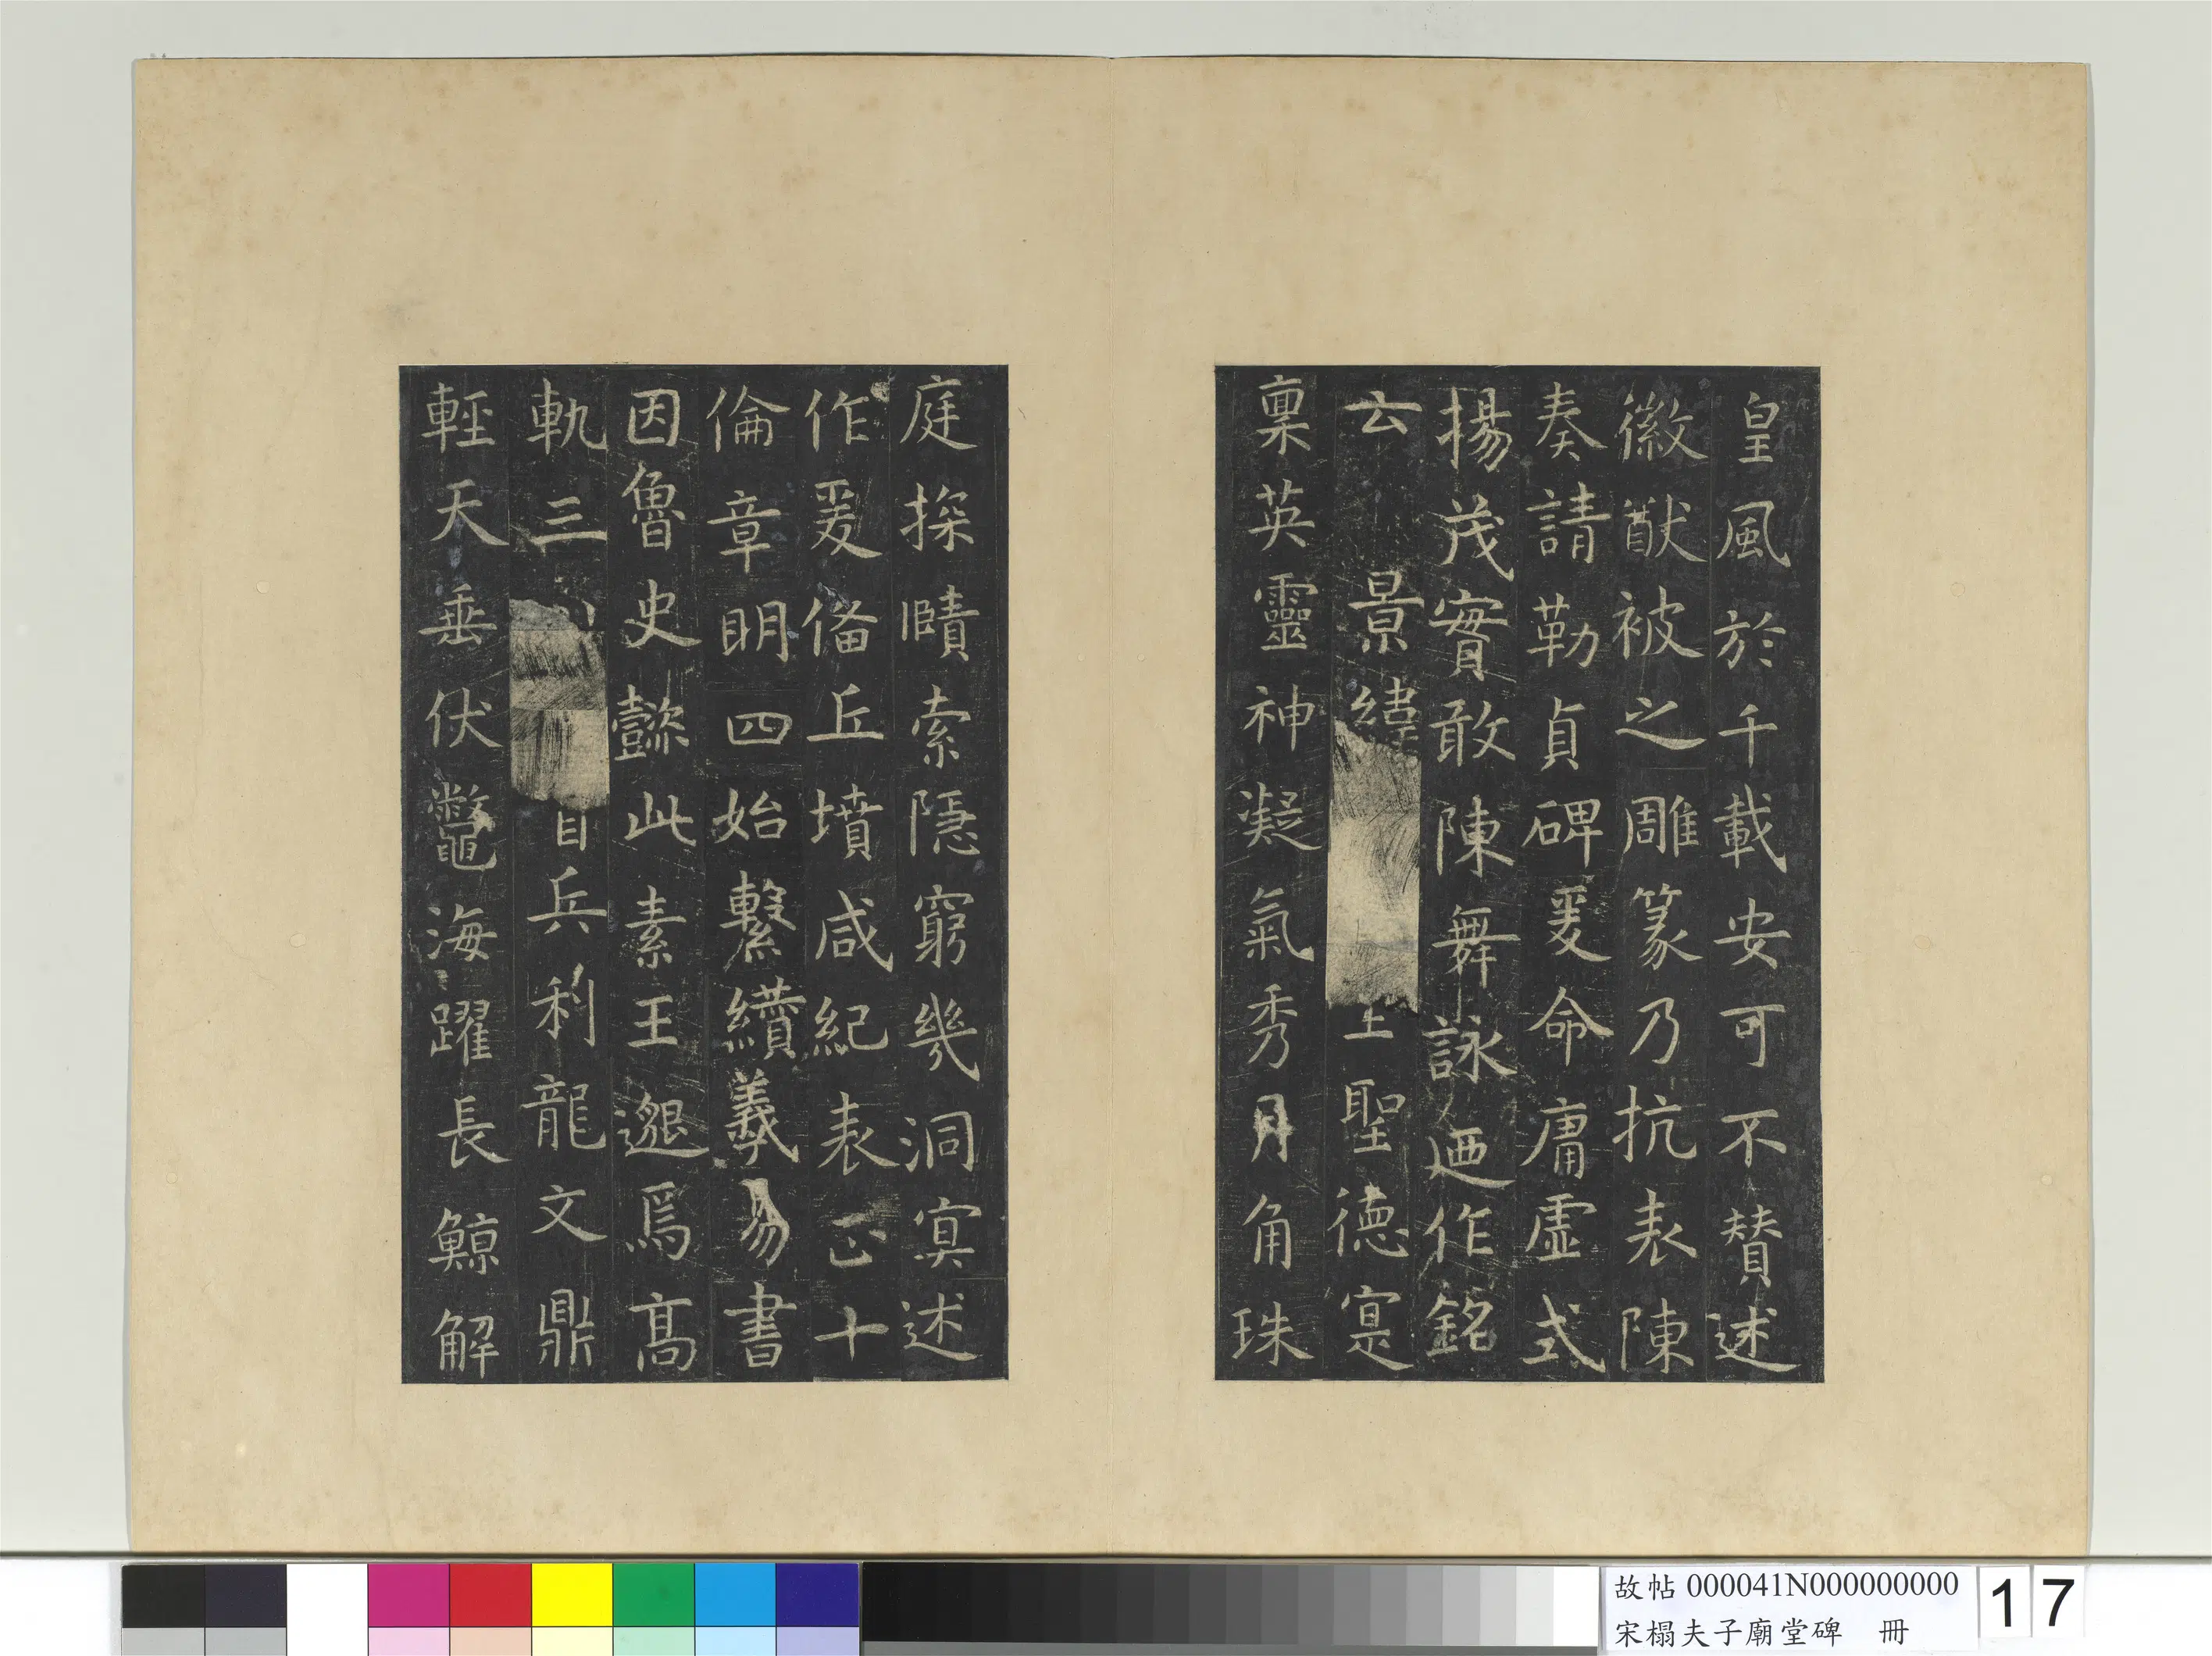 皇風於千載安可不贊述
徽猷被之雕篆乃抗表陳
奏請勒貞碑爰命庸虛式
揚茂實敢陳舞詠廼作銘
云景緯聖德寔
稟英靈神凝氣秀月角珠
庭探賾索隱窮幾洞冥述
作爰俻丘墳咸紀表正十
倫章明四始繫纘羲易書
因魯史懿此素王邈焉高
軌三兵利龍文鼎
輕天垂伏鼈海躍長鯨解
故帖 000041N000000000
宋榻夫子廟堂碑 冊
17